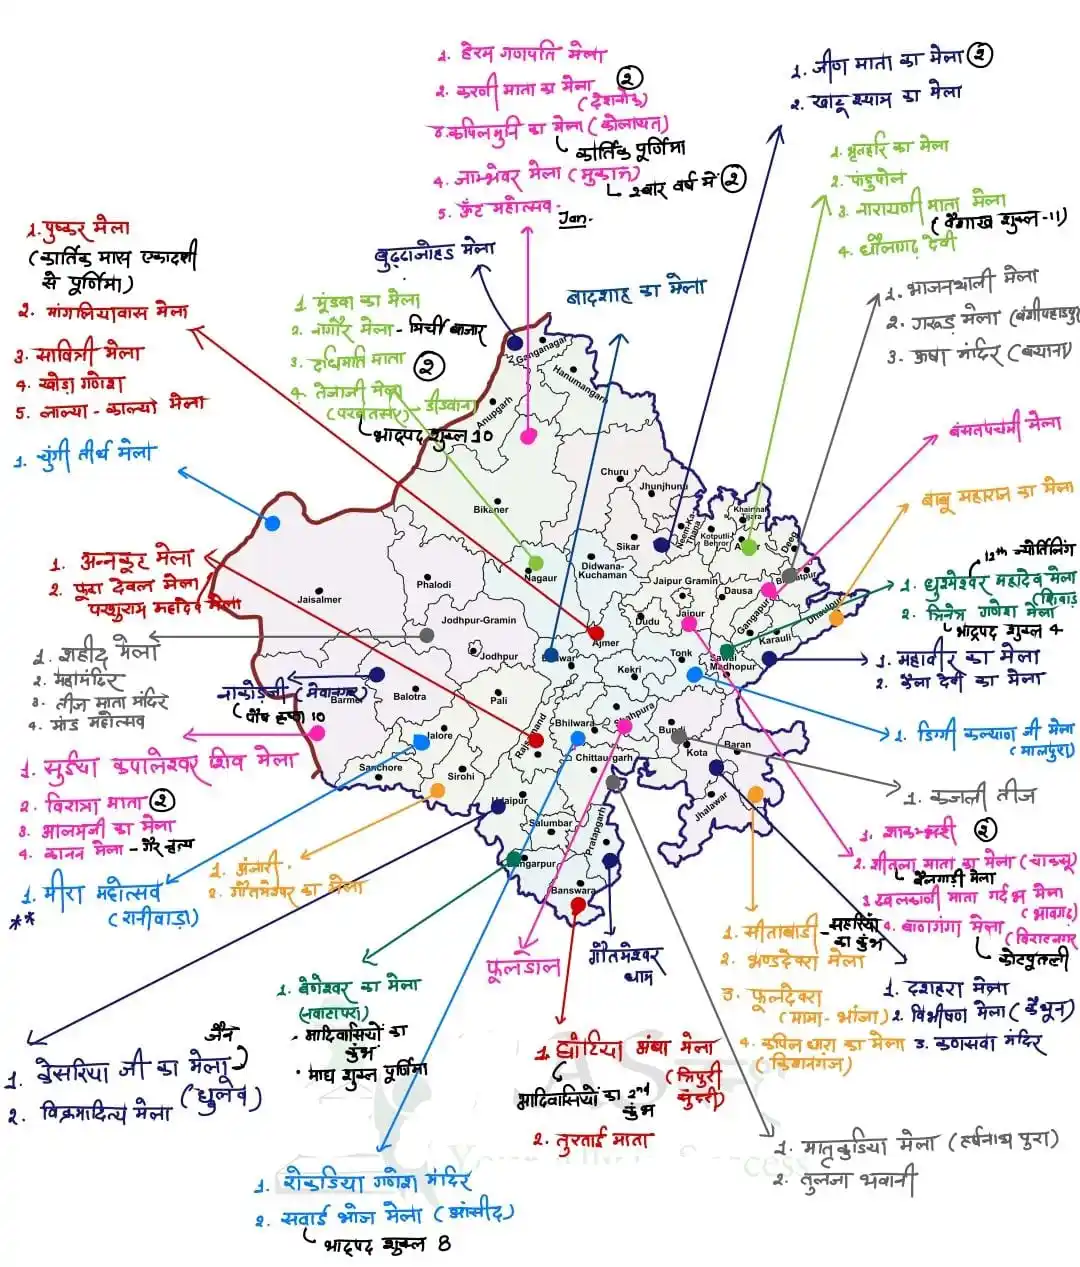 1. हेरम गणपति मेला
2. करणी माता का मेला ②
(देशनोक)
४. कपिलमुनि का मेला (कोलायत)
कार्तिक पूर्णिमा
4. जाम्भेश्वर मेला (मुकाम)
2 बार वर्ष में ②
5. ऊँट महोत्सव - Jan.
1. जीण माता का मेला ②
2. खाटू श्याम का मेला
1. भृतहरि का मेला
2. पांडुपोल
3. नारायणी माता मेला
(वैशाख शुक्ल-11)
4. धौलागढ़ देवी
1. पुष्कर मेला
(कार्तिक मास एकादशी
से पूर्णिमा)
2. मांगलियावास मेला
3. सावित्री मेला
4. खोड़ा गणेश
5. लाल्या - काल्या मेला
बुढ्ढाजोहड मेला
बादशाह का मेला
1 मूंडवा का मेला
2. नागौर मेला - मिर्ची बाजार
3. दधिमति माता ②
4. तेजाजी मेला
(परबतसर) - डीडवाना
भाद्रपद शुक्ल 10
1. भोजनथाली मेला
2. गरूड़ मेला (बंशीपहाड़पुर
3. ऊषा मंदिर (बयाना)
बसंतपंचमी मेला
बाबू महाराज का मेला
1. चुंगी तीर्थ मेला
12th ज्योर्तिलिंग
1. घुश्मेश्वर महादेव मेला
(शिवाड़
2. त्रिनेत्र गणेश मेला
भाद्रपद शुक्ल 4
1. महावीर का मेला
2. कैला देवी का मेला
1. अन्नकूट मेला
2. फूटा देवल मेला
परशुराम महादेव मेला
1. शहीद मेला
2. महामंदिर
3. तीज माता मंदिर
4. मांड महोत्सव
नाकोड़ाजी (मेवानगर)
(पौष कृष्ण 10
1. डिग्गी कल्याण जी मेला
(मालपुरा)
1. सुईया कपालेश्वर शिव मेला
2. विरात्रा माता ②
3. आलमजी का मेला
4. कानन मेला - गैर नृत्य
1. कजली तीज
1. मीरा महोत्सव
(रानीवाड़ा)
**
1. अंजारी
2. गौतमेश्वर का मेला
1. शाकम्भरी ②
2. शीतला माता का मेला (चाकसू)
बैलगाड़ी मेला
3. खलकाणी माता गर्दभ मेला
(भावगढ़)
4. बाणगंगा मेला
(विराटनगर
कोटपुतली
1. सीताबाड़ी - सहरियों
का कुंभ
2. भण्डदेवरा मेला
3. फूलदेवरा
(मामा - भांजा)
4. कपिल धारा का मेला
(किशनगंज)
1. दशहरा मेला
2. विभीषण मेला (कैथून)
3. कणसवा मंदिर
फूलडोल
गौतमेश्वर
धाम
1. बेणेश्वर का मेला
(नवाटापरा)
• आदिवासियों का
कुंभ
• माघ शुक्ल पूर्णिमा
जैन
1. केसरिया जी का मेला
(धुलेव)
2. विक्रमादित्य मेला
1. घोटिया अंबा मेला
(त्रिपुरी
सुंदरी)
आदिवासियों का 2nd
कुंभ
2. तुरताई माता
1. मातृकुंडिया मेला (हर्षनाथ पुरा)
2. तुलजा भवानी
1. रोकडिया गणेश मंदिर
2. सवाई भोज मेला (आंसीद)
भाद्रपद शुक्ल 8
Ganganagar
Hanumangarh
Anupgarh
Churu
Jhunjhunu
Bikaner
Sikar
Neem-Ka-Thana
Kotputli-Behror
Khairthal Tijara
Deeg
Nagaur
Didwana-Kuchaman
Jaipur Gramin
Dausa
Phalodi
Jaisalmer
Jodhpur-Gramin
Jaipur
Dudu
Gangapur
Karauli
Dholpur
Ajmer
Jodhpur
Tonk
Sawai Madhopur
Kekri
Balotra
Barmer
Pali
Shahpura
Bhilwara
Rajsamand
Jalore
Kota
Baran
Chittaurgarh
Sanchore
Sirohi
Jhalawar
Udaipur
Salumbar
Pratapgarh
Banswara